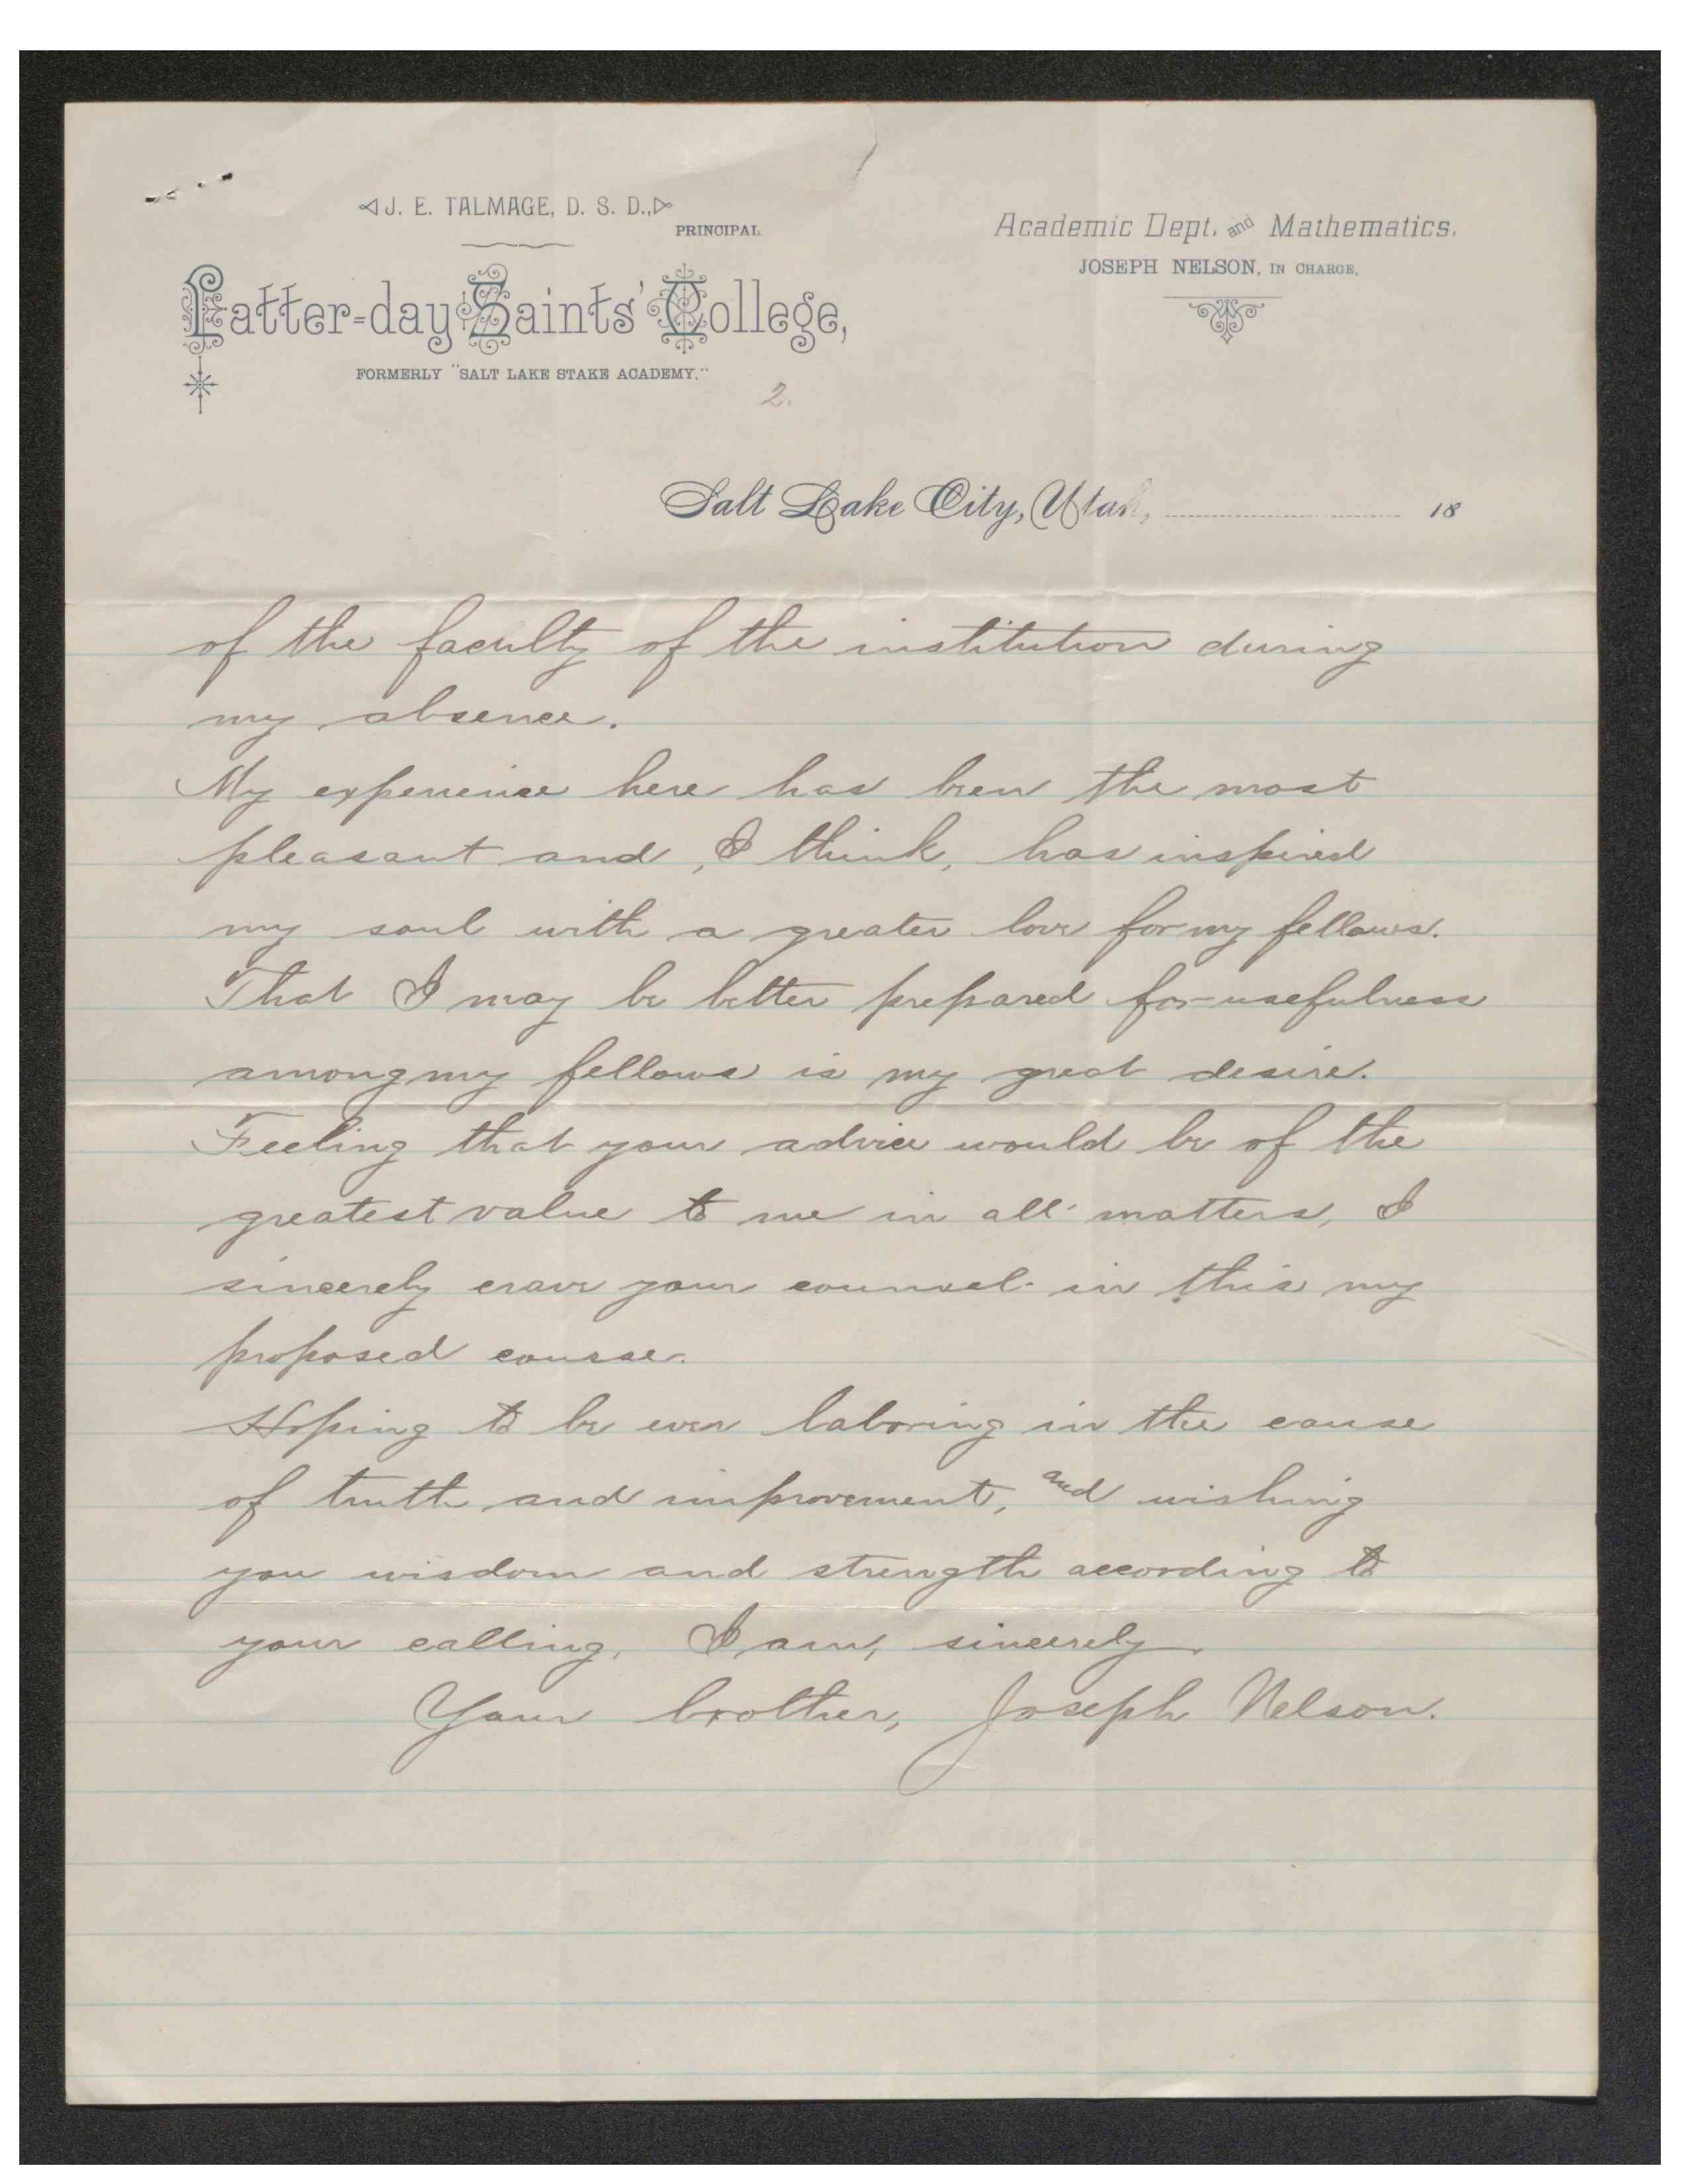 J. E. TALMAGE, D. S. D.,
PRINCIPAL
Latter-day Saints' College,
FORMERLY "SALT LAKE STAKE ACADEMY."
Academic Dept. and Mathematics.
JOSEPH NELSON, IN CHARGE,
2.
Salt Lake City, Utah, 18
of the faculty of the institution during
my absence.
My experience here has been the most
pleasant and, I think, has inspired
my soul with a greater love for my fellows.
That I may be better prepared for usefulness
among my fellows is my great desire.
Feeling that your advice would be of the
greatest value to me in all matters, I
sincerely crave your counsel in this my
proposed course.
Hoping to be ever laboring in the cause
of truth and improvement, and wishing
you wisdom and strength according to
your calling, I am, sincerely
Your brother, Joseph Nelson.